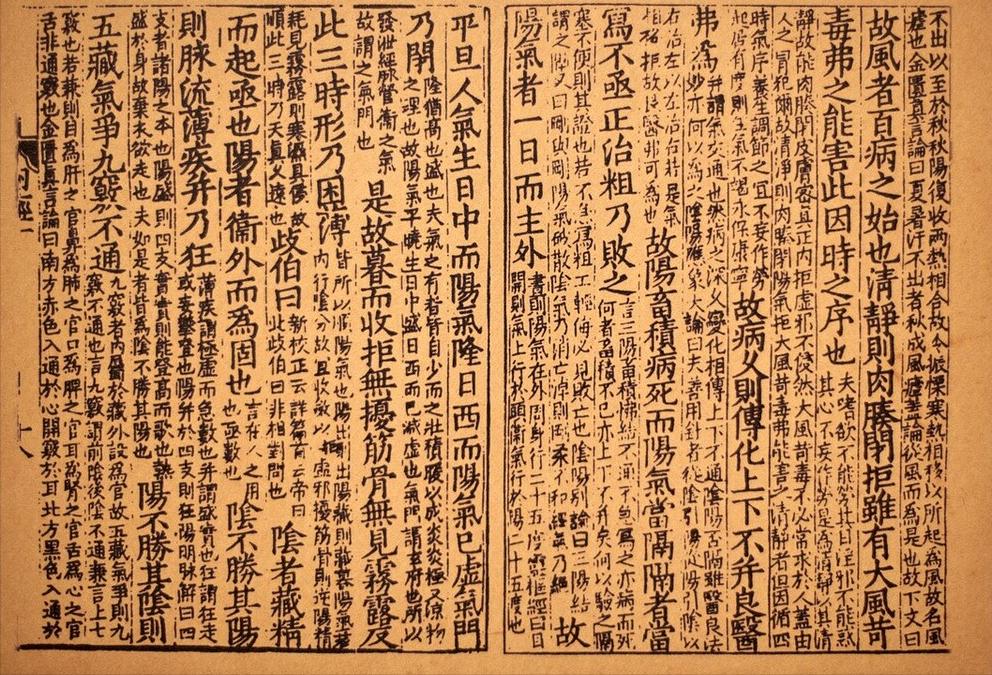 不出以至於秋秋陽復收兩熱相合故令振慄寒熱相移以所起為風故名風
瘧也金匱真言論曰夏暑汗不出者秋成風瘧蓋論從風而為是也故下文曰
故風者百病之始也清靜則肉腠閉拒雖有大風苛
毒弗之能害此因時之序也
夫嗜欲不能勞其目淫邪不能惑
其心不妄作勞是為清靜以其清
靜故能肉腠閉皮膚密真正內拒虛邪不侵然大風苛毒不必常求於人蓋由
人之冒犯爾故清靜則肉腠閉陽氣拒大風苛毒弗能害之清靜者但因循四
時氣序養生調節之宜不妄作勞
起居有度則生氣不竭永保康寧
故病久則傳化上下不并良醫
弗為
并謂氣交通也然病之深久變化相傳上下不通陰陽否隔雖醫良法
妙亦何以為之陰陽應象大論曰夫善用針者從陰引陽從陽引陰以
右治左以左治右若是氣
相格拒故良醫弗可為也
故陽畜積病死而陽氣當隔隔者當
寫不亟正治粗乃敗之
言三陽畜積怫結不通不急寫之亦病而死
何者蓄積不已亦上下不并矣何以驗之隔
塞不便則其證也若不急寫粗工輕侮必見敗亡也陰陽別論曰三陽結
謂之隔又曰剛與剛陽氣破散陰氣乃消亡淖則剛柔不和經氣乃絕
故
陽氣者一日而主外
晝則陽氣在外周身行二十五度靈樞經曰目
開則氣上行於頭衛氣行於陽二十五度也
平旦人氣生日中而陽氣隆日西而陽氣已虛氣門
乃閉
隆猶高也盛也夫氣之有者皆自少而之壯積暖以成炎炎極又涼物
之理也故陽氣平曉生日中盛日西而已減虛也氣門謂玄府也所以
發泄經脉營衛之氣
故謂之氣門也
是故暮而收拒無擾筋骨無見霧露反
此三時形乃困薄
皆所以順陽氣也陽出則出陽藏則藏暮陽氣衰
內行陰分故宜收斂以拒虛邪擾筋骨則逆陽精
耗見霧露則寒濕具侵故
順此三時乃天真久遠也
歧伯曰
新校正云詳篇首云帝曰
此歧伯曰非相對問也
陰者藏精
而起亟也陽者衛外而為固也
言在人之用
也亟數也
陰不勝其陽
則脉流薄疾并乃狂
薄疾謂極虛而急數也并謂盛實也狂謂狂走
或妄攀登也陽并於四支則狂陽明脉解曰四
支者諸陽之本也陽盛則四支實實則能登高而歌也熱
盛於身故棄衣欲走也夫如是者皆為陰不勝其陽也
陽不勝其陰則
五藏氣爭九竅不通
九竅者內屬於藏外設為官故五藏氣爭則九
竅不通也言九竅謂前陰後陰不通兼言上七
竅也若兼則目為肝之官鼻為肺之官口為脾之官耳為腎之官舌為心之官
舌非通竅也金匱真言論曰南方赤色入通於心開竅於耳北方黑色入通於